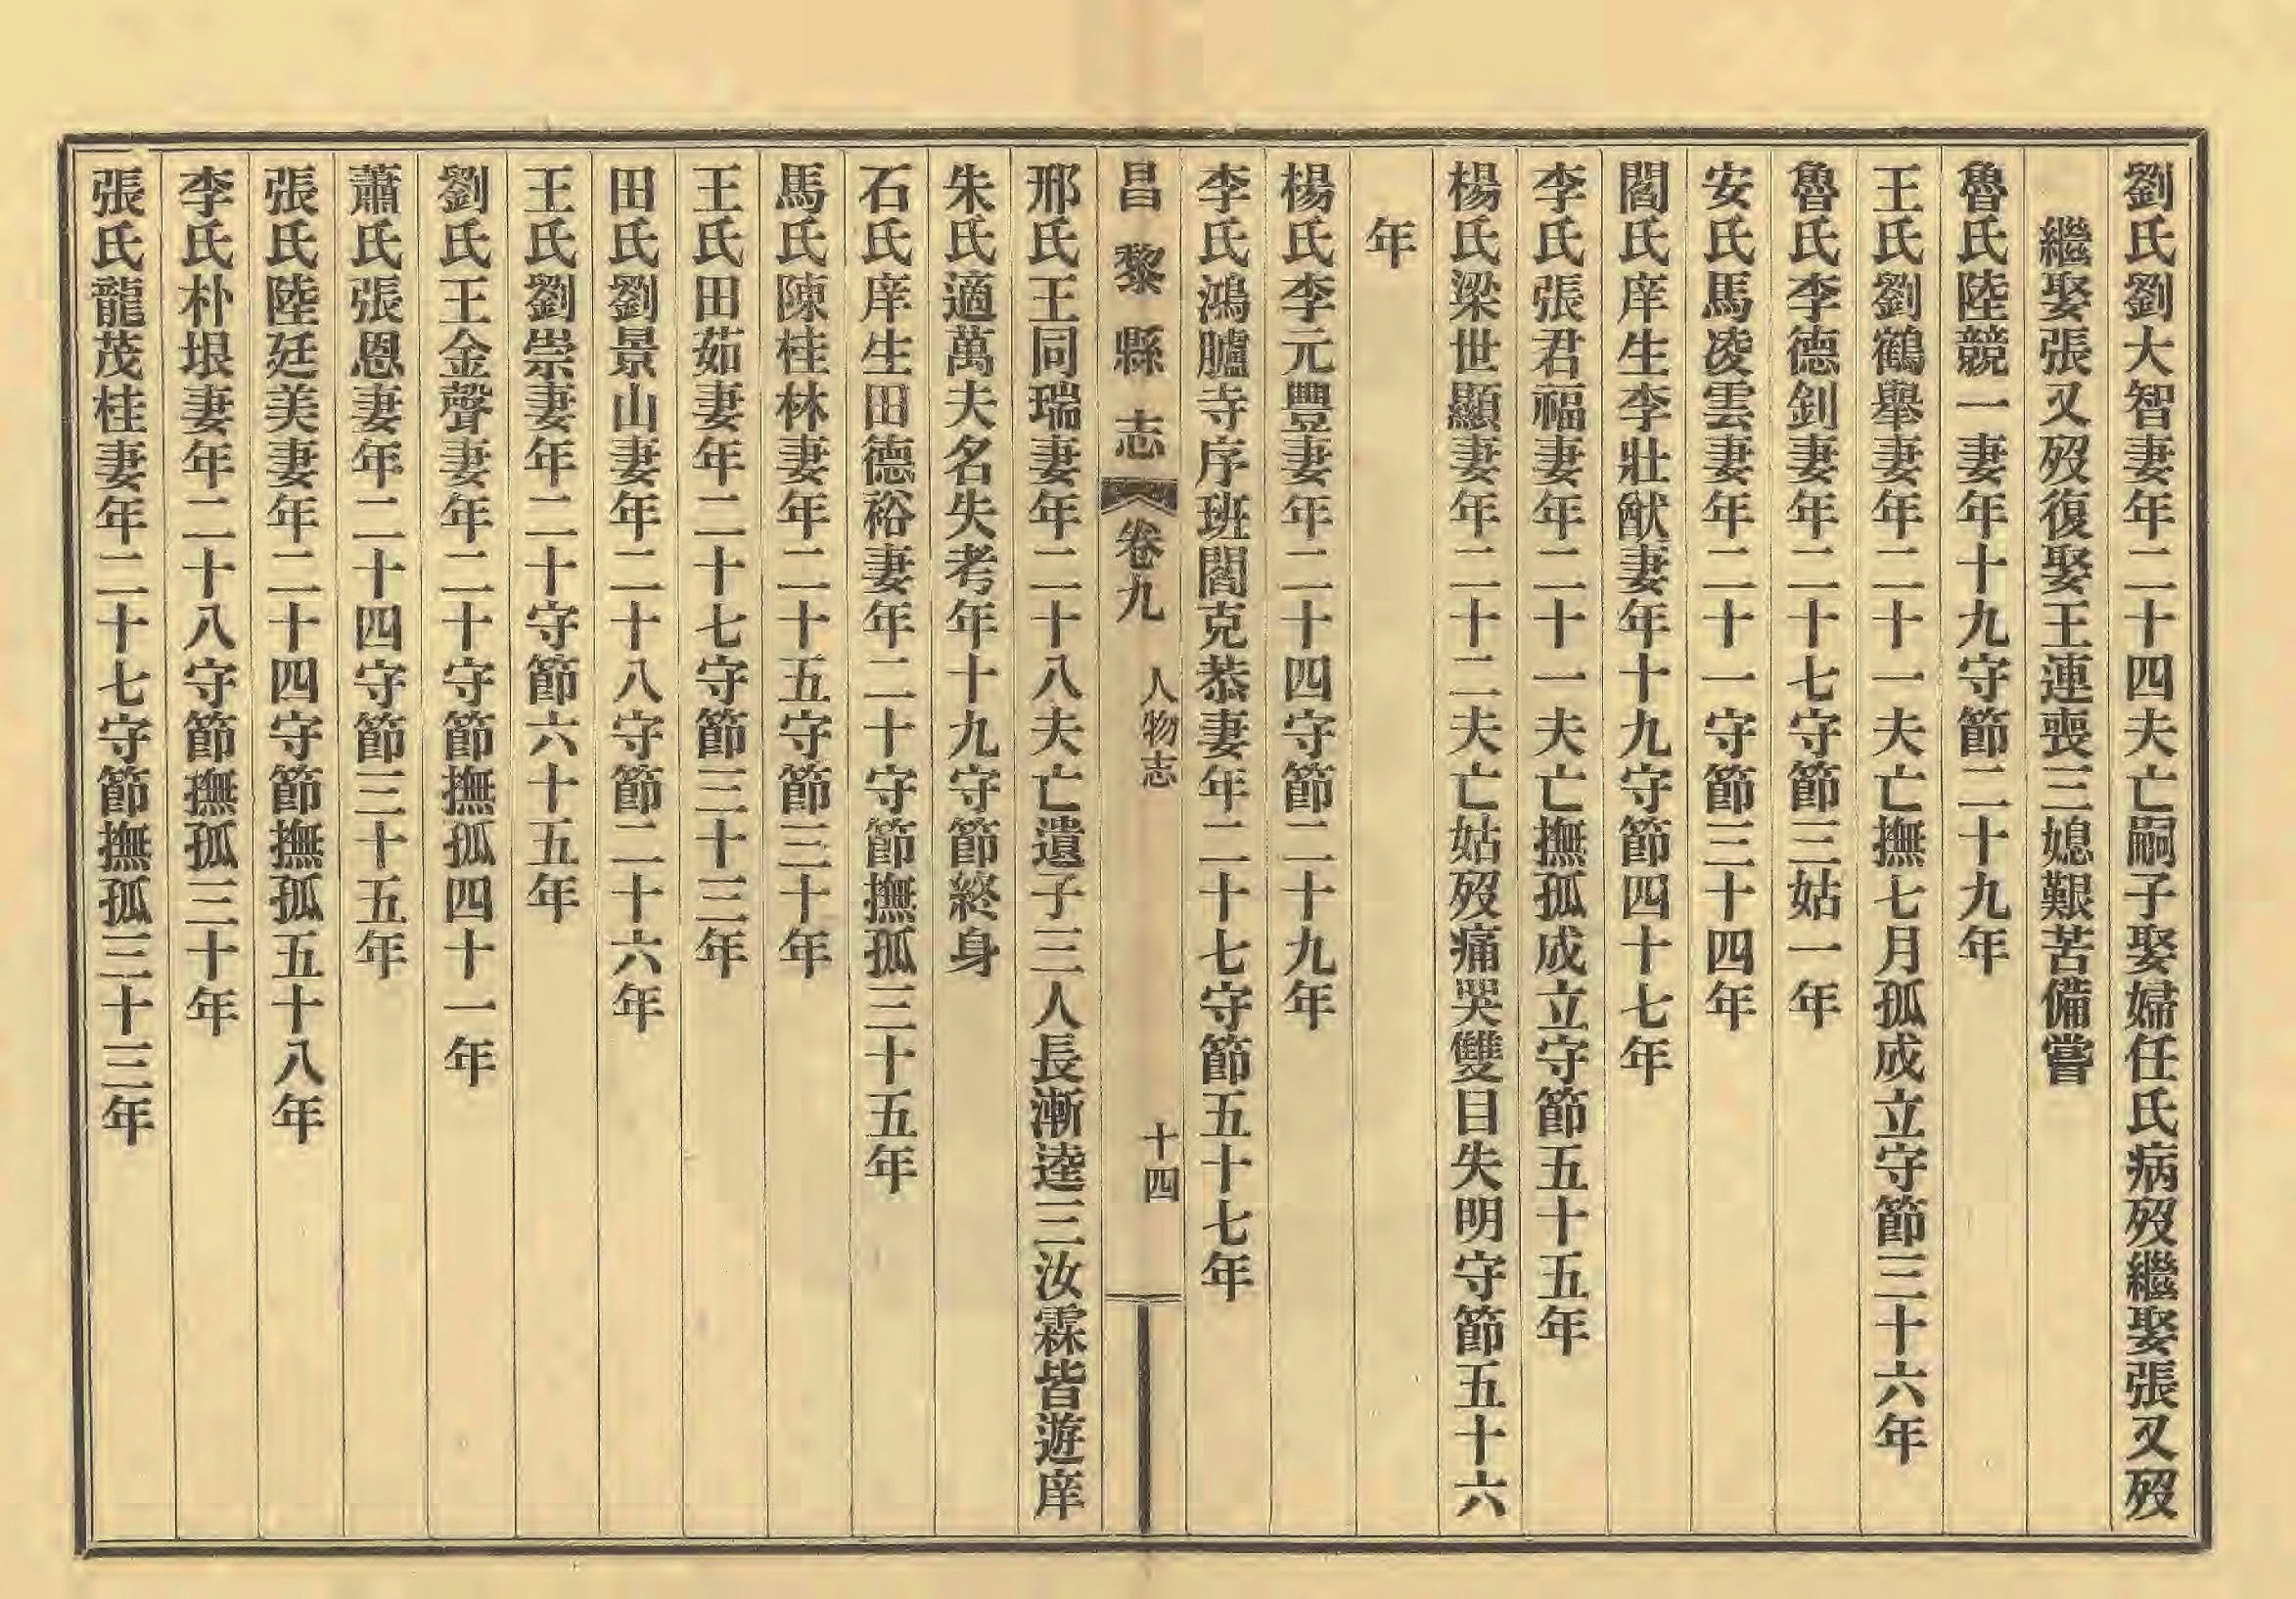 劉氏劉大智妻年二十四夫亡嗣子娶婦任氏病歿繼娶張又歿
繼娶張又歿復娶王連喪三媳艱苦備嘗
魯氏陸競一妻年十九守節二十九年
王氏劉鶴舉妻年二十一夫亡撫七月孤成立守節三十六年
魯氏李德釗妻年二十七守節三姑一年
安氏馬凌雲妻年二十一守節三十四年
閻氏庠生李壯猷妻年十九守節四十七年
李氏張君福妻年二十一夫亡撫孤成立守節五十五年
楊氏梁世顯妻年二十二夫亡姑歿痛哭雙目失明守節五十六
年
楊氏李元豐妻年二十四守節二十九年
李氏鴻臚寺序班閻克恭妻年二十七守節五十七年
昌黎縣志 卷九 人物志 十四
邢氏王同瑞妻年二十八夫亡遺子三人長漸逵三汝霖皆遊庠
朱氏適萬夫名失考年十九守節終身
石氏庠生田德裕妻年二十守節撫孤三十五年
馬氏陳桂林妻年二十五守節三十年
王氏田茹妻年二十七守節三十三年
田氏劉景山妻年二十八守節二十六年
王氏劉崇妻年二十守節六十五年
劉氏王金聲妻年二十守節撫孤四十一年
蕭氏張恩妻年二十四守節三十五年
張氏陸廷美妻年二十四守節撫孤五十八年
李氏朴垠妻年二十八守節撫孤三十年
張氏龍茂桂妻年二十七守節撫孤三十三年